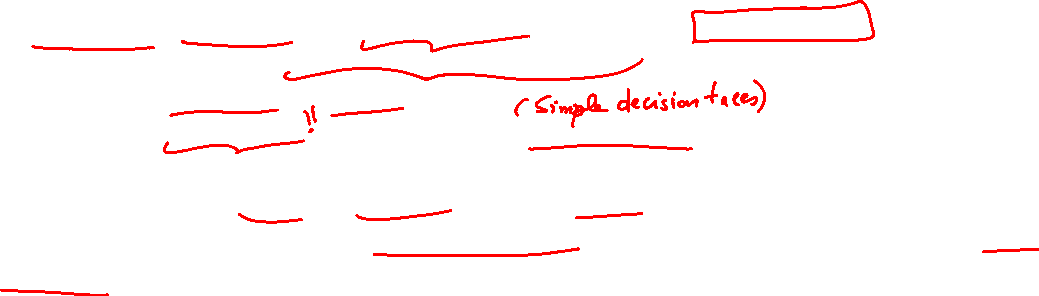 !!
(Simple decision trees)